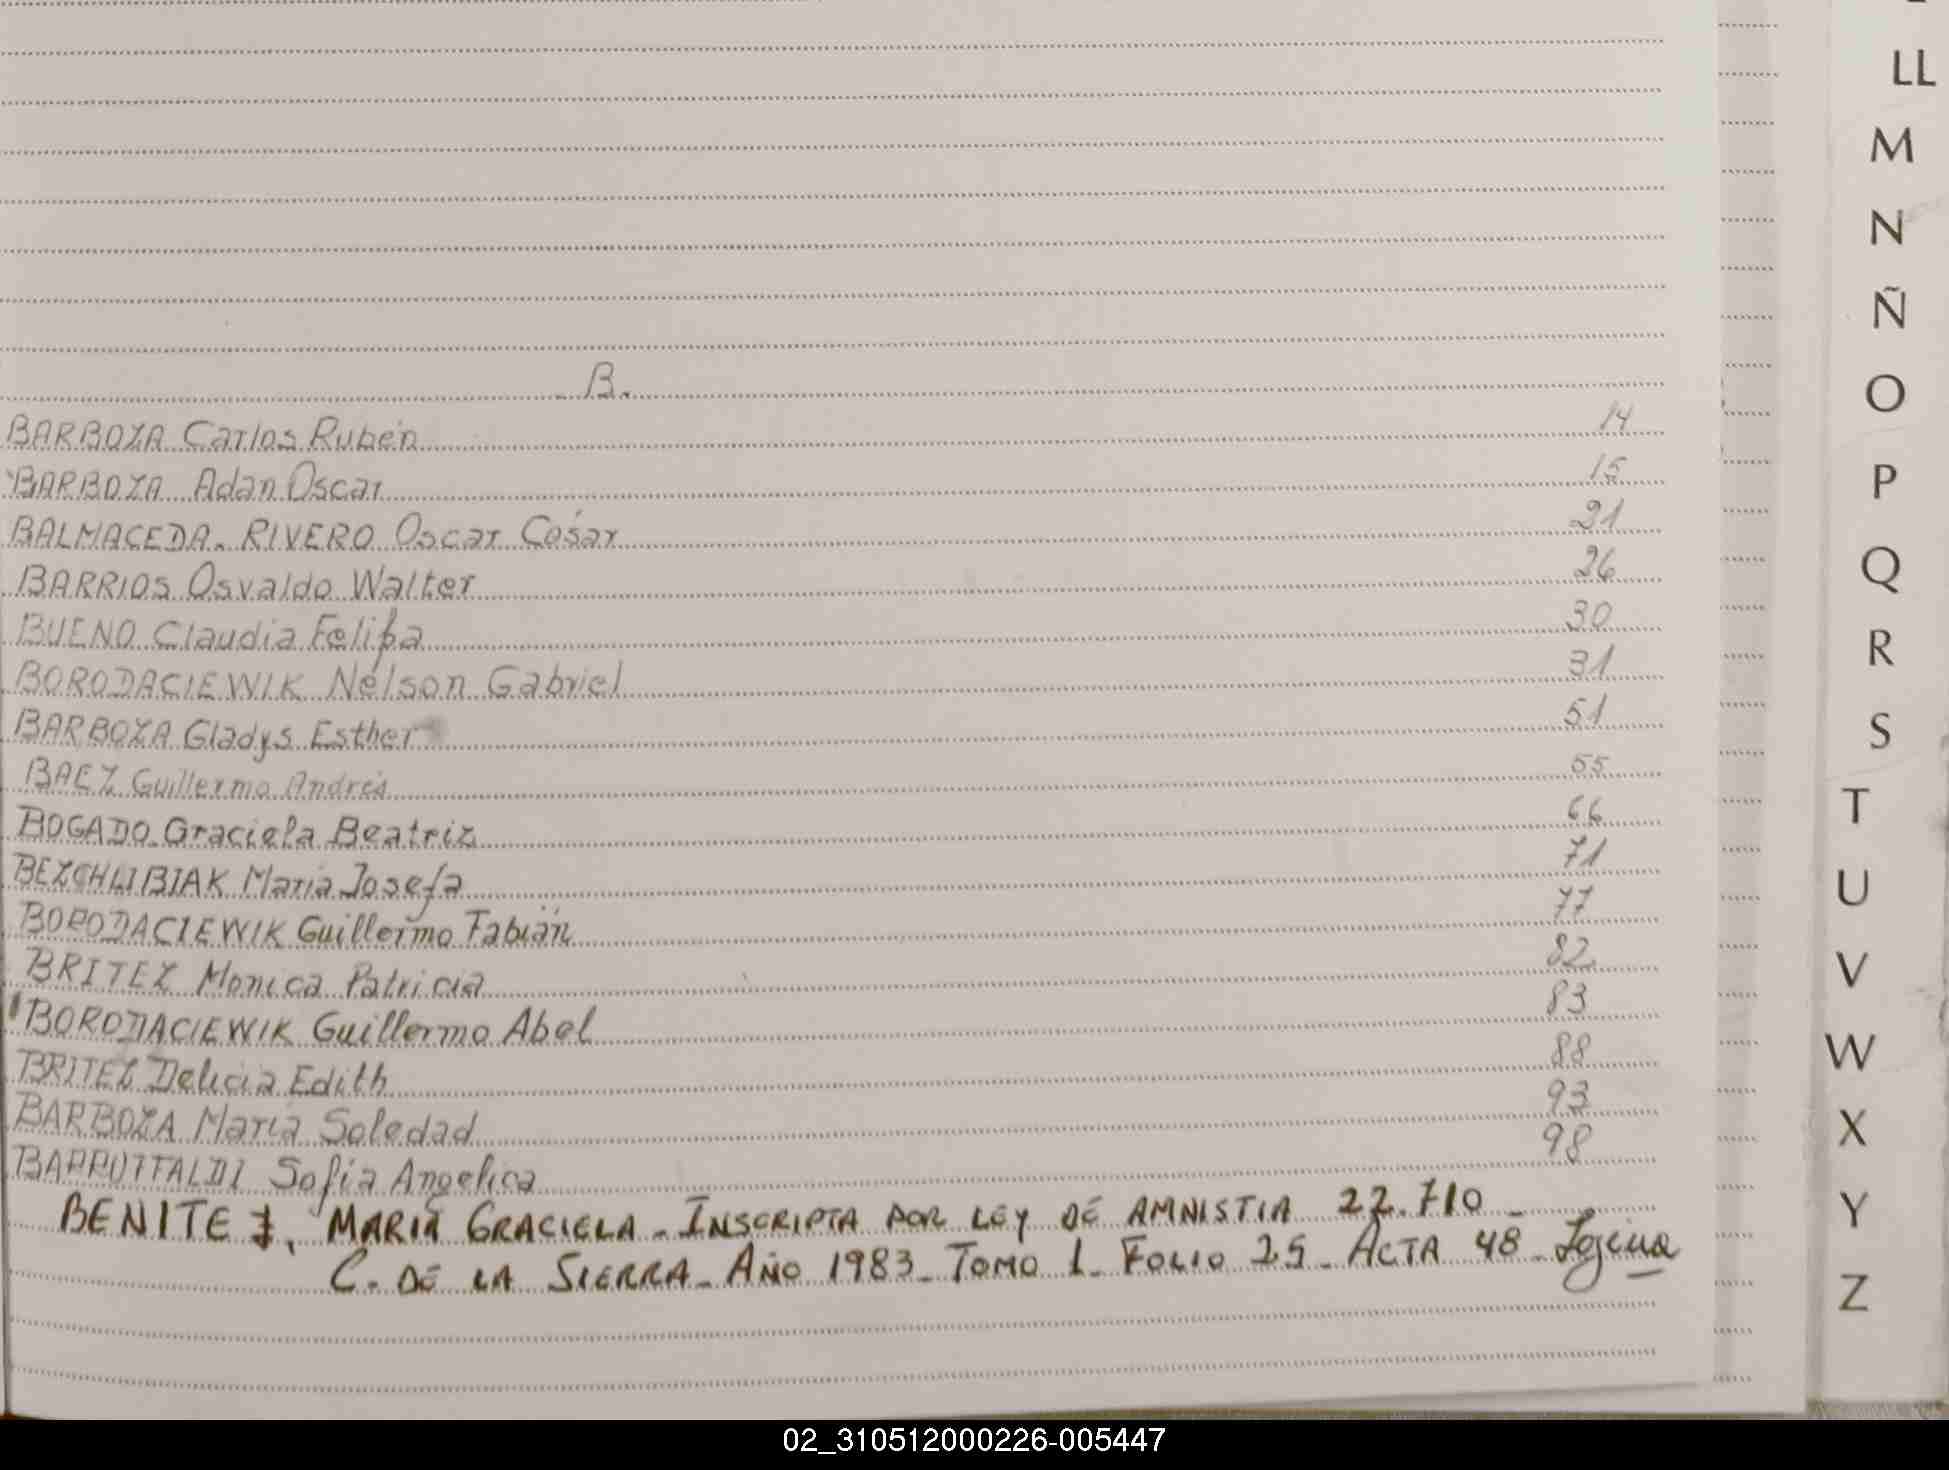 B.
BARBOZA Carlos Rubén 14
BARBOZA Adan Oscar 15
BALMACEDA. RIVERO Oscar César 21
BARRIOS Osvaldo Walter 26
BUENO Claudia Felipa 30
BORODACIEWIK Nélson Gabriel 31
BARBOZA Gladys Esther 51
BAEZ Guillermo Andrés 55
BOGADO Graciela Beatriz 66
BEZCHLIBIAK María Josefa 71
BORODACIEWIK Guillermo Fabián 77
BRITEZ Monica Patricia 82
BORODACIEWIK Guillermo Abel 83
BRITEZ Delicia Edith 88
BARBOZA María Soledad 93
BARRUTTALDI Sofia Angelica 98
BENITEZ, MARIA GRACIELA - INSCRIPTA POR LEY DE AMNISTIA 22.710
C. DE LA SIERRA - AÑO 1983 - TOMO 1 - FOLIO 25 - ACTA 48
LL
M
N
Ñ
O
P
Q
R
S
T
U
V
W
X
Y
Z
02_310512000226-005447